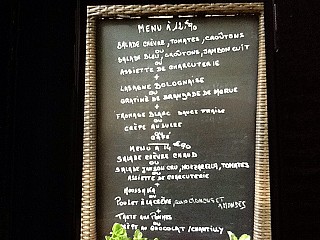 MENU À 12,90
SALADE CHÈVRE, TOMATES, CROÛTONS
OU
SALADE BLEU, CROÛTONS, JAMBON CUIT
OU
ASSIETTE DE CHARCUTERIE
+
LASAGNE BOLOGNAISE
OU
GRATINÉ DE BRANDADE DE MORUE
+
FROMAGE BLANC SAUCE FRAISE
OU
CRÊPE AU SUCRE
MENU À 14,90
SALADE CHÈVRE CHAUD
OU
SALADE JAMBON CRU, MOZZARELLA, TOMATES
OU
ASSIETTE DE CHARCUTERIE
+
MOUSSAKA
OU
POULET À LA CRÈME, AUX AMANDES
+
TARTE AUX
CRÊPE AU CHOCOLAT/CHANTILLY